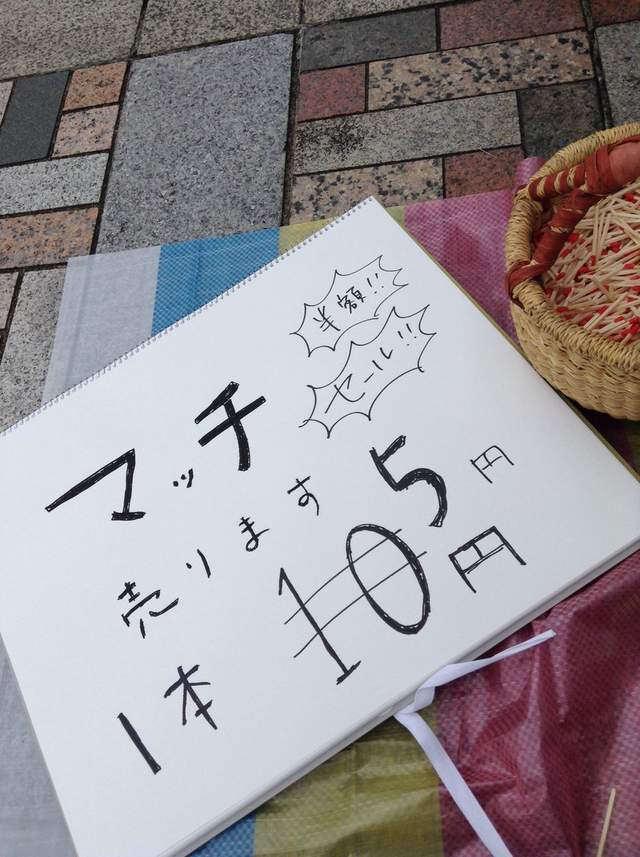 半額!!
セール!!
マッチ
売ります
1本 10円
5円